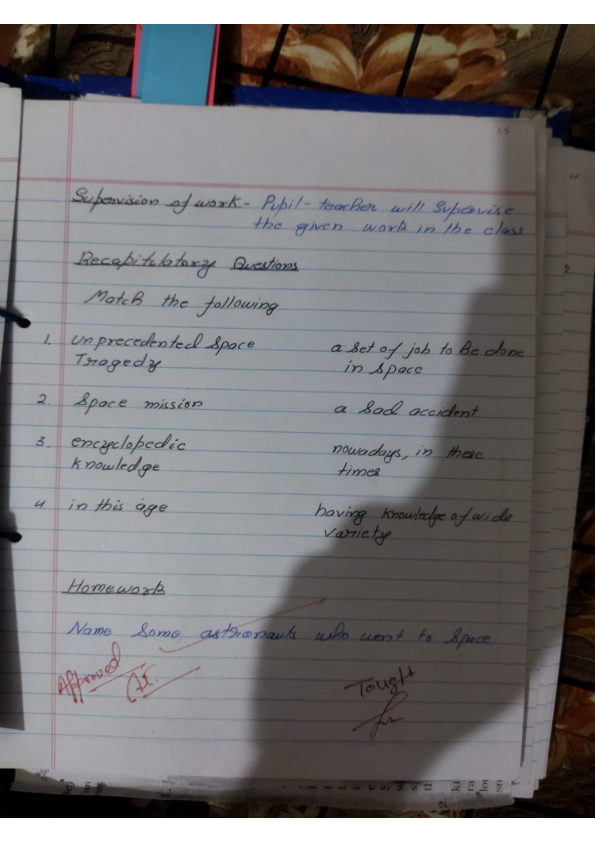 15
Supervision of work - Pupil-teacher will Supervise
the given work in the class
Recapitulatory Questions
Match the following
1. unprecedented Space
Tragedy
a set of job to Be done
in space
2 Space mission
a Sad accident
3. encyclopedic
Knowledge
nowadays, in these
times
4. in this age
having Knowledge of wide
variety
Homework
Name Some astronauts who went to Space
Approved
Tought